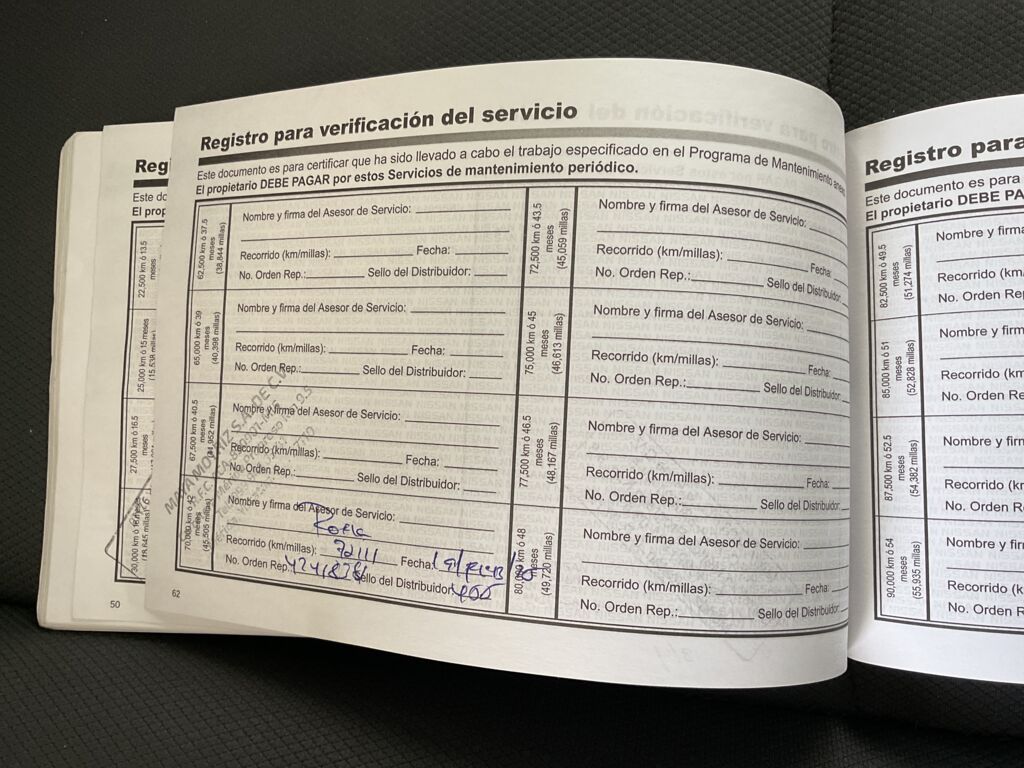 Registro para verificación del servicio
Este documento es para certificar que ha sido llevado a cabo el trabajo especificado en el Programa de Mantenimiento
El propietario DEBE PAGAR por estos Servicios de mantenimiento periódico.
62,500 km ó 37.5
meses
(38,844 millas)
Nombre y firma del Asesor de Servicio:
Recorrido (km/millas): Fecha:
No. Orden Rep.: Sello del Distribuidor:
65,000 km ó 39
meses
(40,398 millas)
Nombre y firma del Asesor de Servicio:
Recorrido (km/millas): Fecha:
No. Orden Rep.: Sello del Distribuidor:
67,500 km ó 40.5
meses
Nombre y firma del Asesor de Servicio:
Recorrido (km/millas): Fecha:
No. Orden Rep.: Sello del Distribuidor:
70,000 km ó 42
meses
(45,505 millas)
Nombre y firma del Asesor de Servicio:
Recorrido (km/millas): Fecha:
No. Orden Rep.: Sello del Distribuidor:
72,500 km ó 43.5
meses
(45,059 millas)
Nombre y firma del Asesor de Servicio:
Recorrido (km/millas): Fecha:
No. Orden Rep.: Sello del Distribuidor:
75,000 km ó 45
meses
(46,613 millas)
Nombre y firma del Asesor de Servicio:
Recorrido (km/millas): Fecha:
No. Orden Rep.: Sello del Distribuidor:
77,500 km ó 46.5
meses
(48,167 millas)
Nombre y firma del Asesor de Servicio:
Recorrido (km/millas): Fecha:
No. Orden Rep.: Sello del Distribuidor:
80,000 km ó 48
meses
(49,720 millas)
Nombre y firma del Asesor de Servicio:
Recorrido (km/millas): Fecha:
No. Orden Rep.: Sello del Distribuidor:
62
Este
El
22,500 km ó 13.5
meses
25,000 km ó 15 meses
27,500 km ó 16.5
meses
50
Registro para
Este documento es para
El propietario DEBE
82,500 km ó 49.5
meses
(51,274 millas)
Nombre y firma
Recorrido
No. Orden Rep.:
85,000 km ó 51
meses
(52,828 millas)
Nombre y
Recorrido
No. Orden
87,500 km ó 52.5
meses
(54,382 millas)
Nombre y
Recorrido
No. Orden
90,000 km ó 54
meses
(55,935 millas)
Nombre y
Recorrido
No. Orden